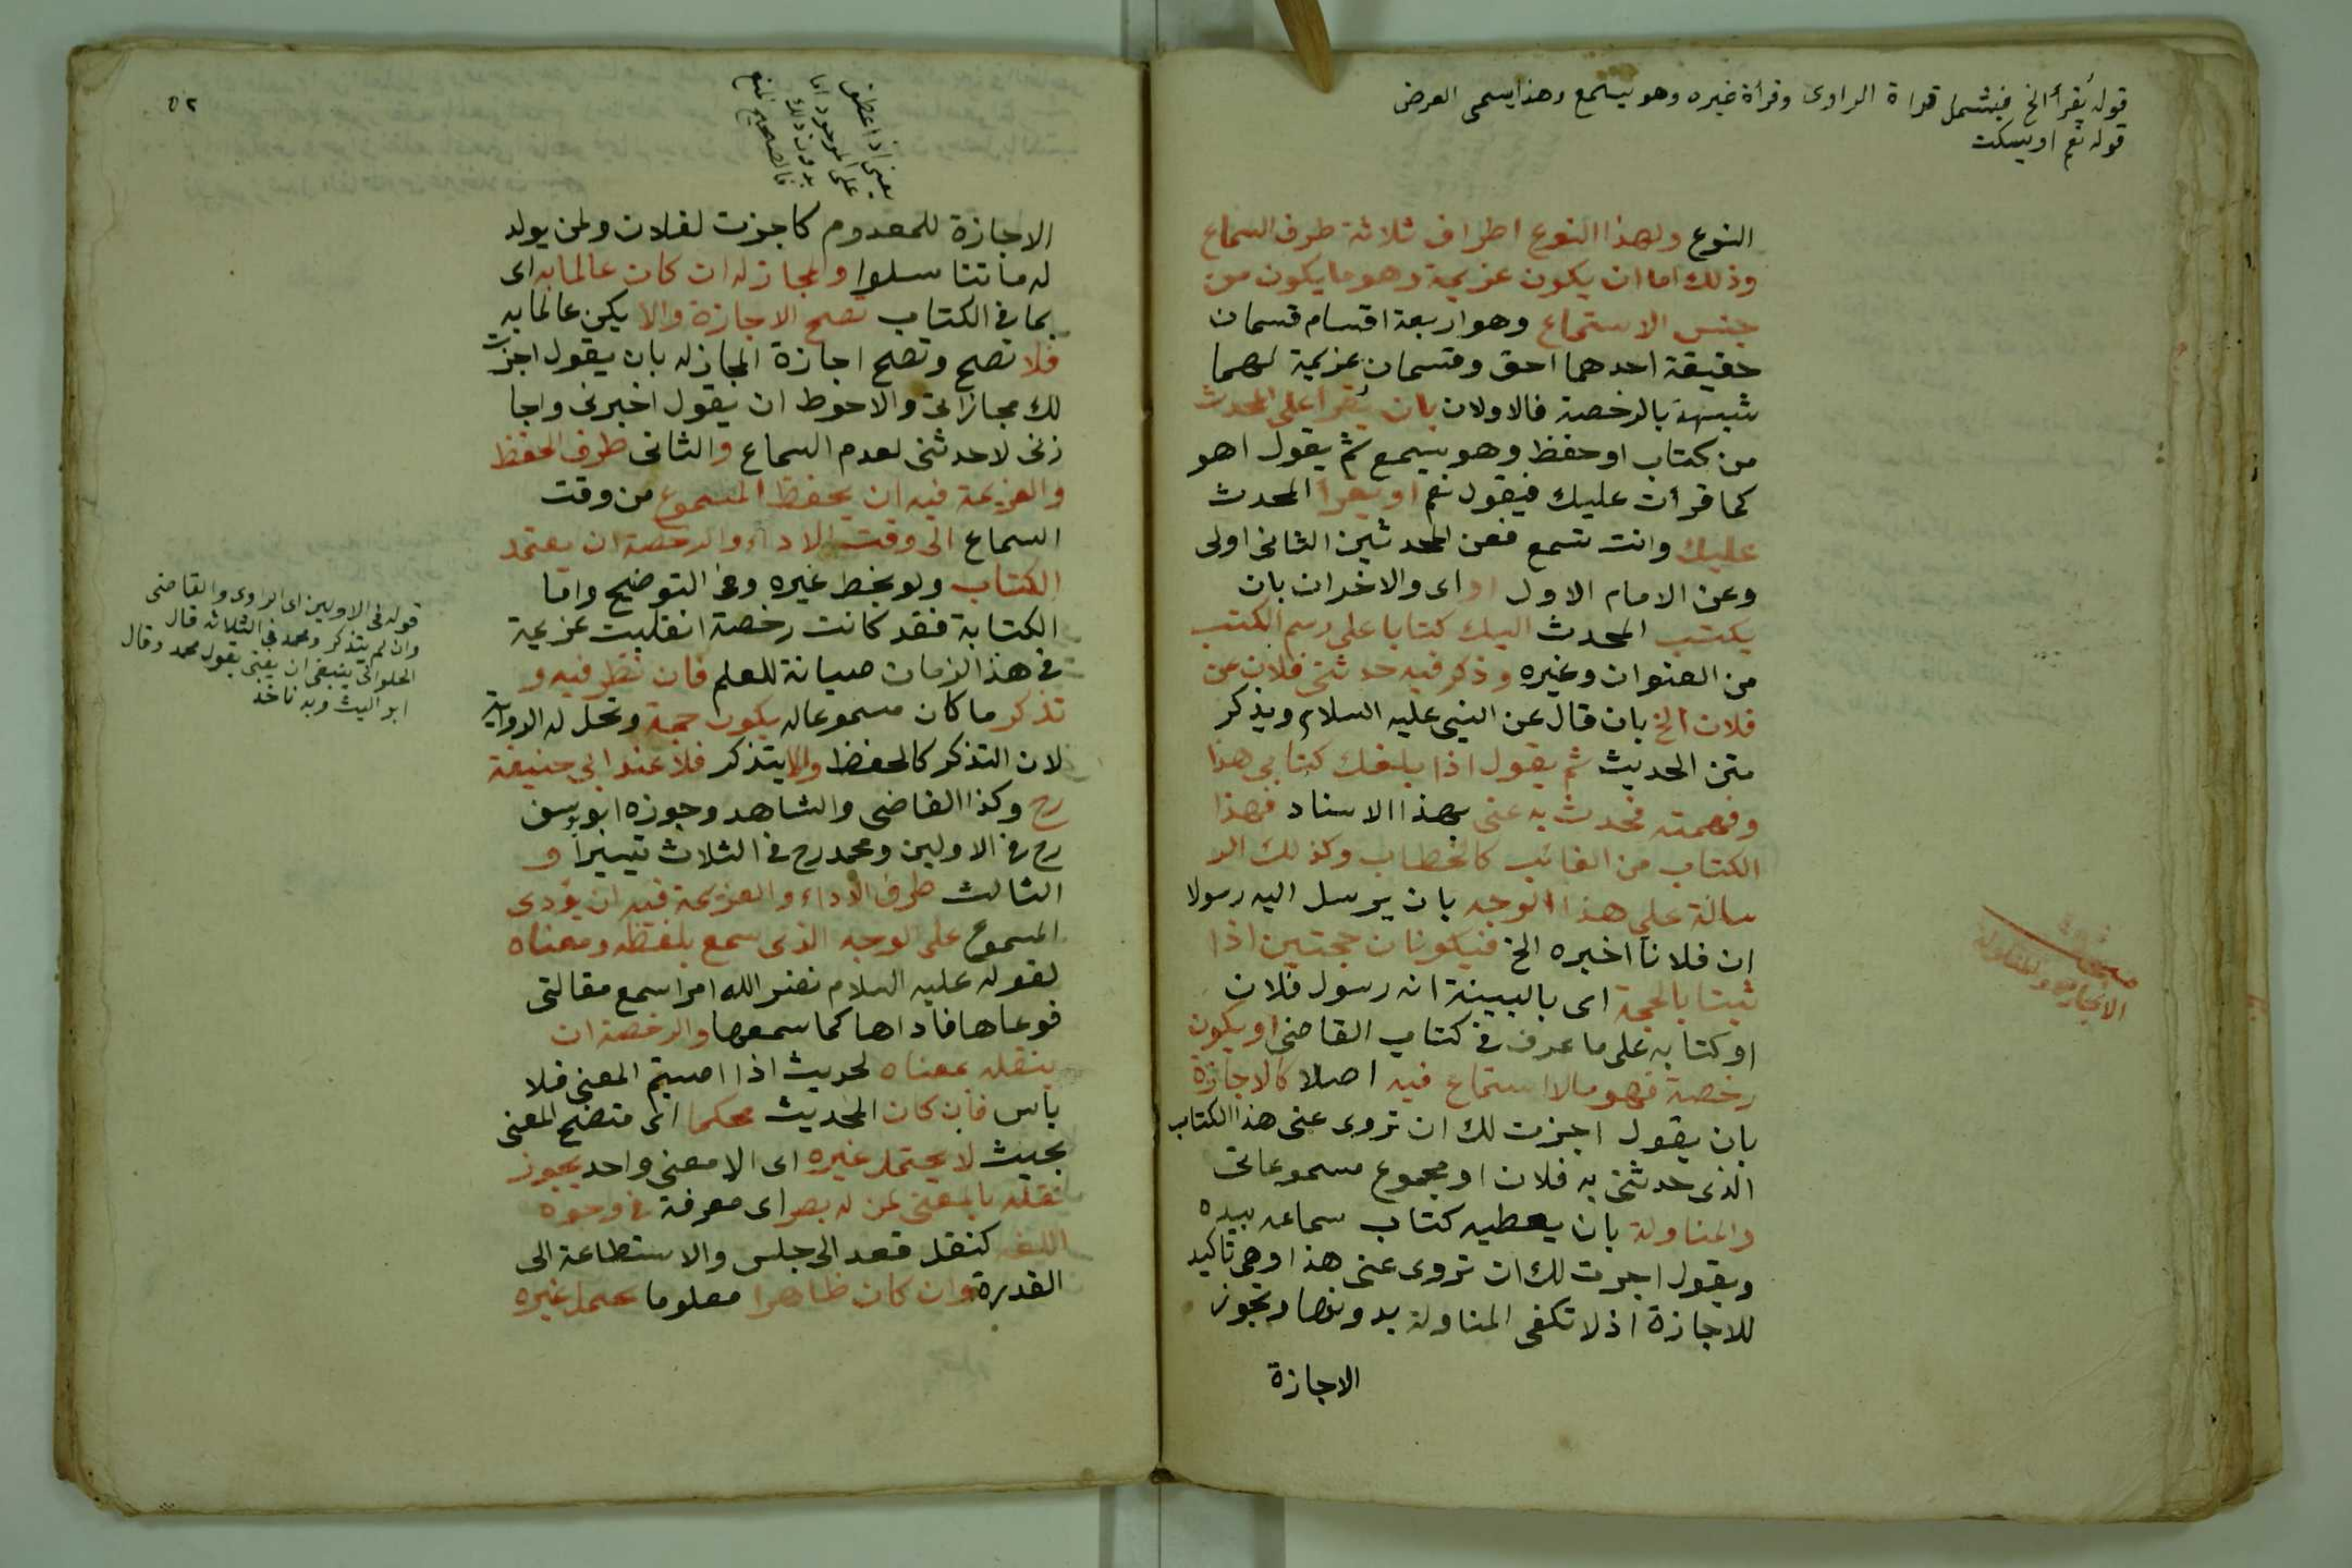 قوله يُقرأ الخ فيشمل قراة الراوى وقرأة غيره وهو يسمع وهذا يسمى العرض
قوله نعم او يسكت
النوع ولهذا النوع اطراف ثلاثة طرف السماع
وذلك اما ان يكون عزيمة وهو ما يكون من
جنس الاستماع وهو اربعة اقسام قسمان
حقيقة احدهما احق وقسمان عزيمة لهما
شبهة بالرخصة فالاولان بان يُقرأ على المحدث
من كتاب او حفظ وهو يسمع ثم يقول اهو
كما قرأت عليك فيقول نعم او يقرأ المحدث
عليك وانت تسمع فعن المحدثين الثانى اولى
وعن الامام الاول اولى والاخران بان
يكتب المحدث اليك كتابا على رسم الكتب
من العنوان وغيره وذكر فيه حدثنى فلان عن
فلان الخ بان قال عن النبى عليه السلام ويذكر
متن الحديث ثم يقول اذا بلغك كتابي هذا
وفهمته فحدث به عنى بهذا الاسناد فهذا
الكتاب من الغائب كالخطاب وكذلك الر
سالة على هذا الوجه بان يرسل اليه رسولا
ان فلانا اخبره الخ فيكونان حجتين اذا
ثبتا بالحجة اى بالبينة انه رسول فلان
او كتابه على ما عرف فى كتاب القاضى او يكون
رخصة فهو ما لا استماع فيه اصلا كالاجازة
بان يقول اجزت لك ان تروى عنى هذا الكتاب
الذى حدثنى به فلان او مجموع مسموعاتى
والمناولة بان يعطيه كتاب سماعه بيده
ويقول اجزت لك ان تروى عنى هذا وهى تاكيد
للاجازة اذ لا تكفى المناولة بدونها وتجوز
الاجازة
مبحث
الاجازة والمناولة
٥٢
يعنى اذا عطف
على الموجود اما
بدون ذلك
فالصحيح المنع
الاجازة للمعدوم كاجزت لفلان ولمن يولد
له ما تناسلوا والمجاز له ان كان عالما به اى
بما فى الكتاب تصح الاجازة والا يكن عالما به
فلا تصح وتصح اجازة المجاز له بان يقول اجزت
لك مجازاتى والاحوط ان يقول اخبرنى واجا
زنى لا حدثنى لعدم السماع والثانى طرف الحفظ
والعزيمة فيه ان يحفظ المسموع من وقت
السماع الى وقت الاداء والرخصة ان يعتمد
الكتاب ولو بخط غيره وفى التوضيح واما
الكتابة فقد كانت رخصة انقلبت عزيمة
فى هذا الزمان صيانة للعلم فان نظر فيه و
تذكر ما كان مسموعا له يكون حجة وتحل له الرواية
لان التذكر كالحفظ والا يتذكر فلا عند ابي حنيفة
رح وكذا القاضى والشاهد وجوزه ابو يوسف
رح فى الاولين ومحمد رح فى الثلاث تيسيرا و
الثالث طرف الاداء والعزيمة فيه ان يؤدى
المسموع على الوجه الذى سمع بلفظه ومعناه
لقوله عليه السلام نضر الله امرا سمع مقالتى
فوعاها فاداها كما سمعها والرخصة ان
ينقله بمعناه لحديث اذا اصبتم المعنى فلا
باس فان كان الحديث محكما اى متضح المعنى
بحيث لا يحتمل غيره اى الا معنى واحد يجوز
نقله بالمعنى لمن له بصر اى معرفة فى وجوه
اللغه كنقل قعد الى جلس والاستطاعة الى
القدرة وان كان ظاهرا معلوما يحتمل غيره
قوله فى الاولين اى الراوى والقاضى
وان لم يتذكر ومحمد فى الثلاثه قال
الحلوانى ينبغى ان يفتى بقول محمد وقال
ابو اليث وبه ناخذ